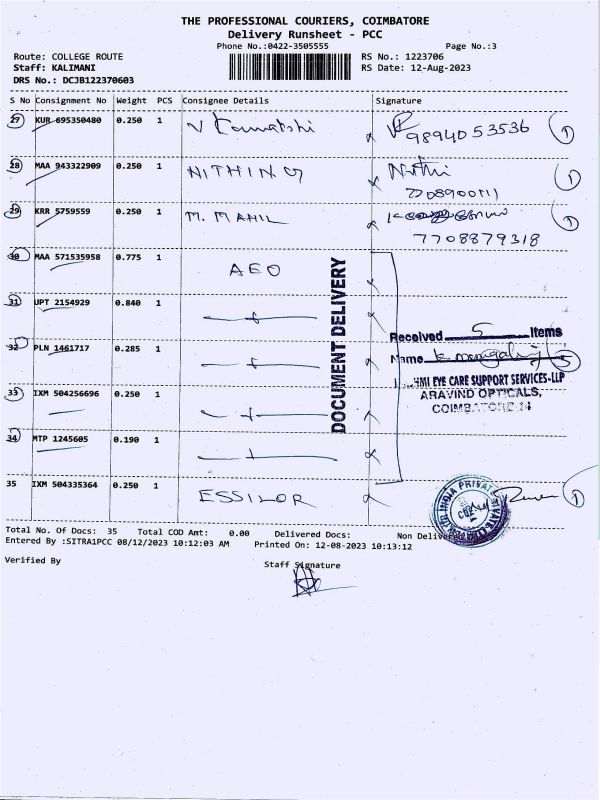 THE PROFESSIONAL COURIERS, COIMBATORE
Delivery Runsheet - PCC
Phone No.:0422-3505555 Page No.:3
Route: COLLEGE ROUTE RS No.: 1223706
Staff: KALIMANI RS Date: 12-Aug-2023
DRS No.: DCJB122370603
S No Consignment No Weight PCS Consignee Details Signature
27 KUR 695350480 0.250 1 9894053536 1
28 MAA 943322909 0.250 1 NITHIN G Nithi 1
7708900711
29 KRR 5759559 0.250 1 M. MAHIL 1
7708879318
30 MAA 571535958 0.775 1 AEO
31 UPT 2154929 0.840 1
Received 5 Items
32 PLN 1461717 0.285 1 Name 5
EYE CARE SUPPORT SERVICES-LLP
33 IXM 504256696 0.250 1 ARAVIND OPTICALS,
COIMBATORE-14
34 MTP 1245605 0.190 1
35 IXM 504335364 0.250 1 ESSILOR 1
DOCUMENT DELIVERY
INDIA PRIVATE
Total No. Of Docs: 35 Total COD Amt: 0.00 Delivered Docs: Non Delivered
Entered By :SITRA1PCC 08/12/2023 10:12:03 AM Printed On: 12-08-2023 10:13:12
Verified By Staff Signature